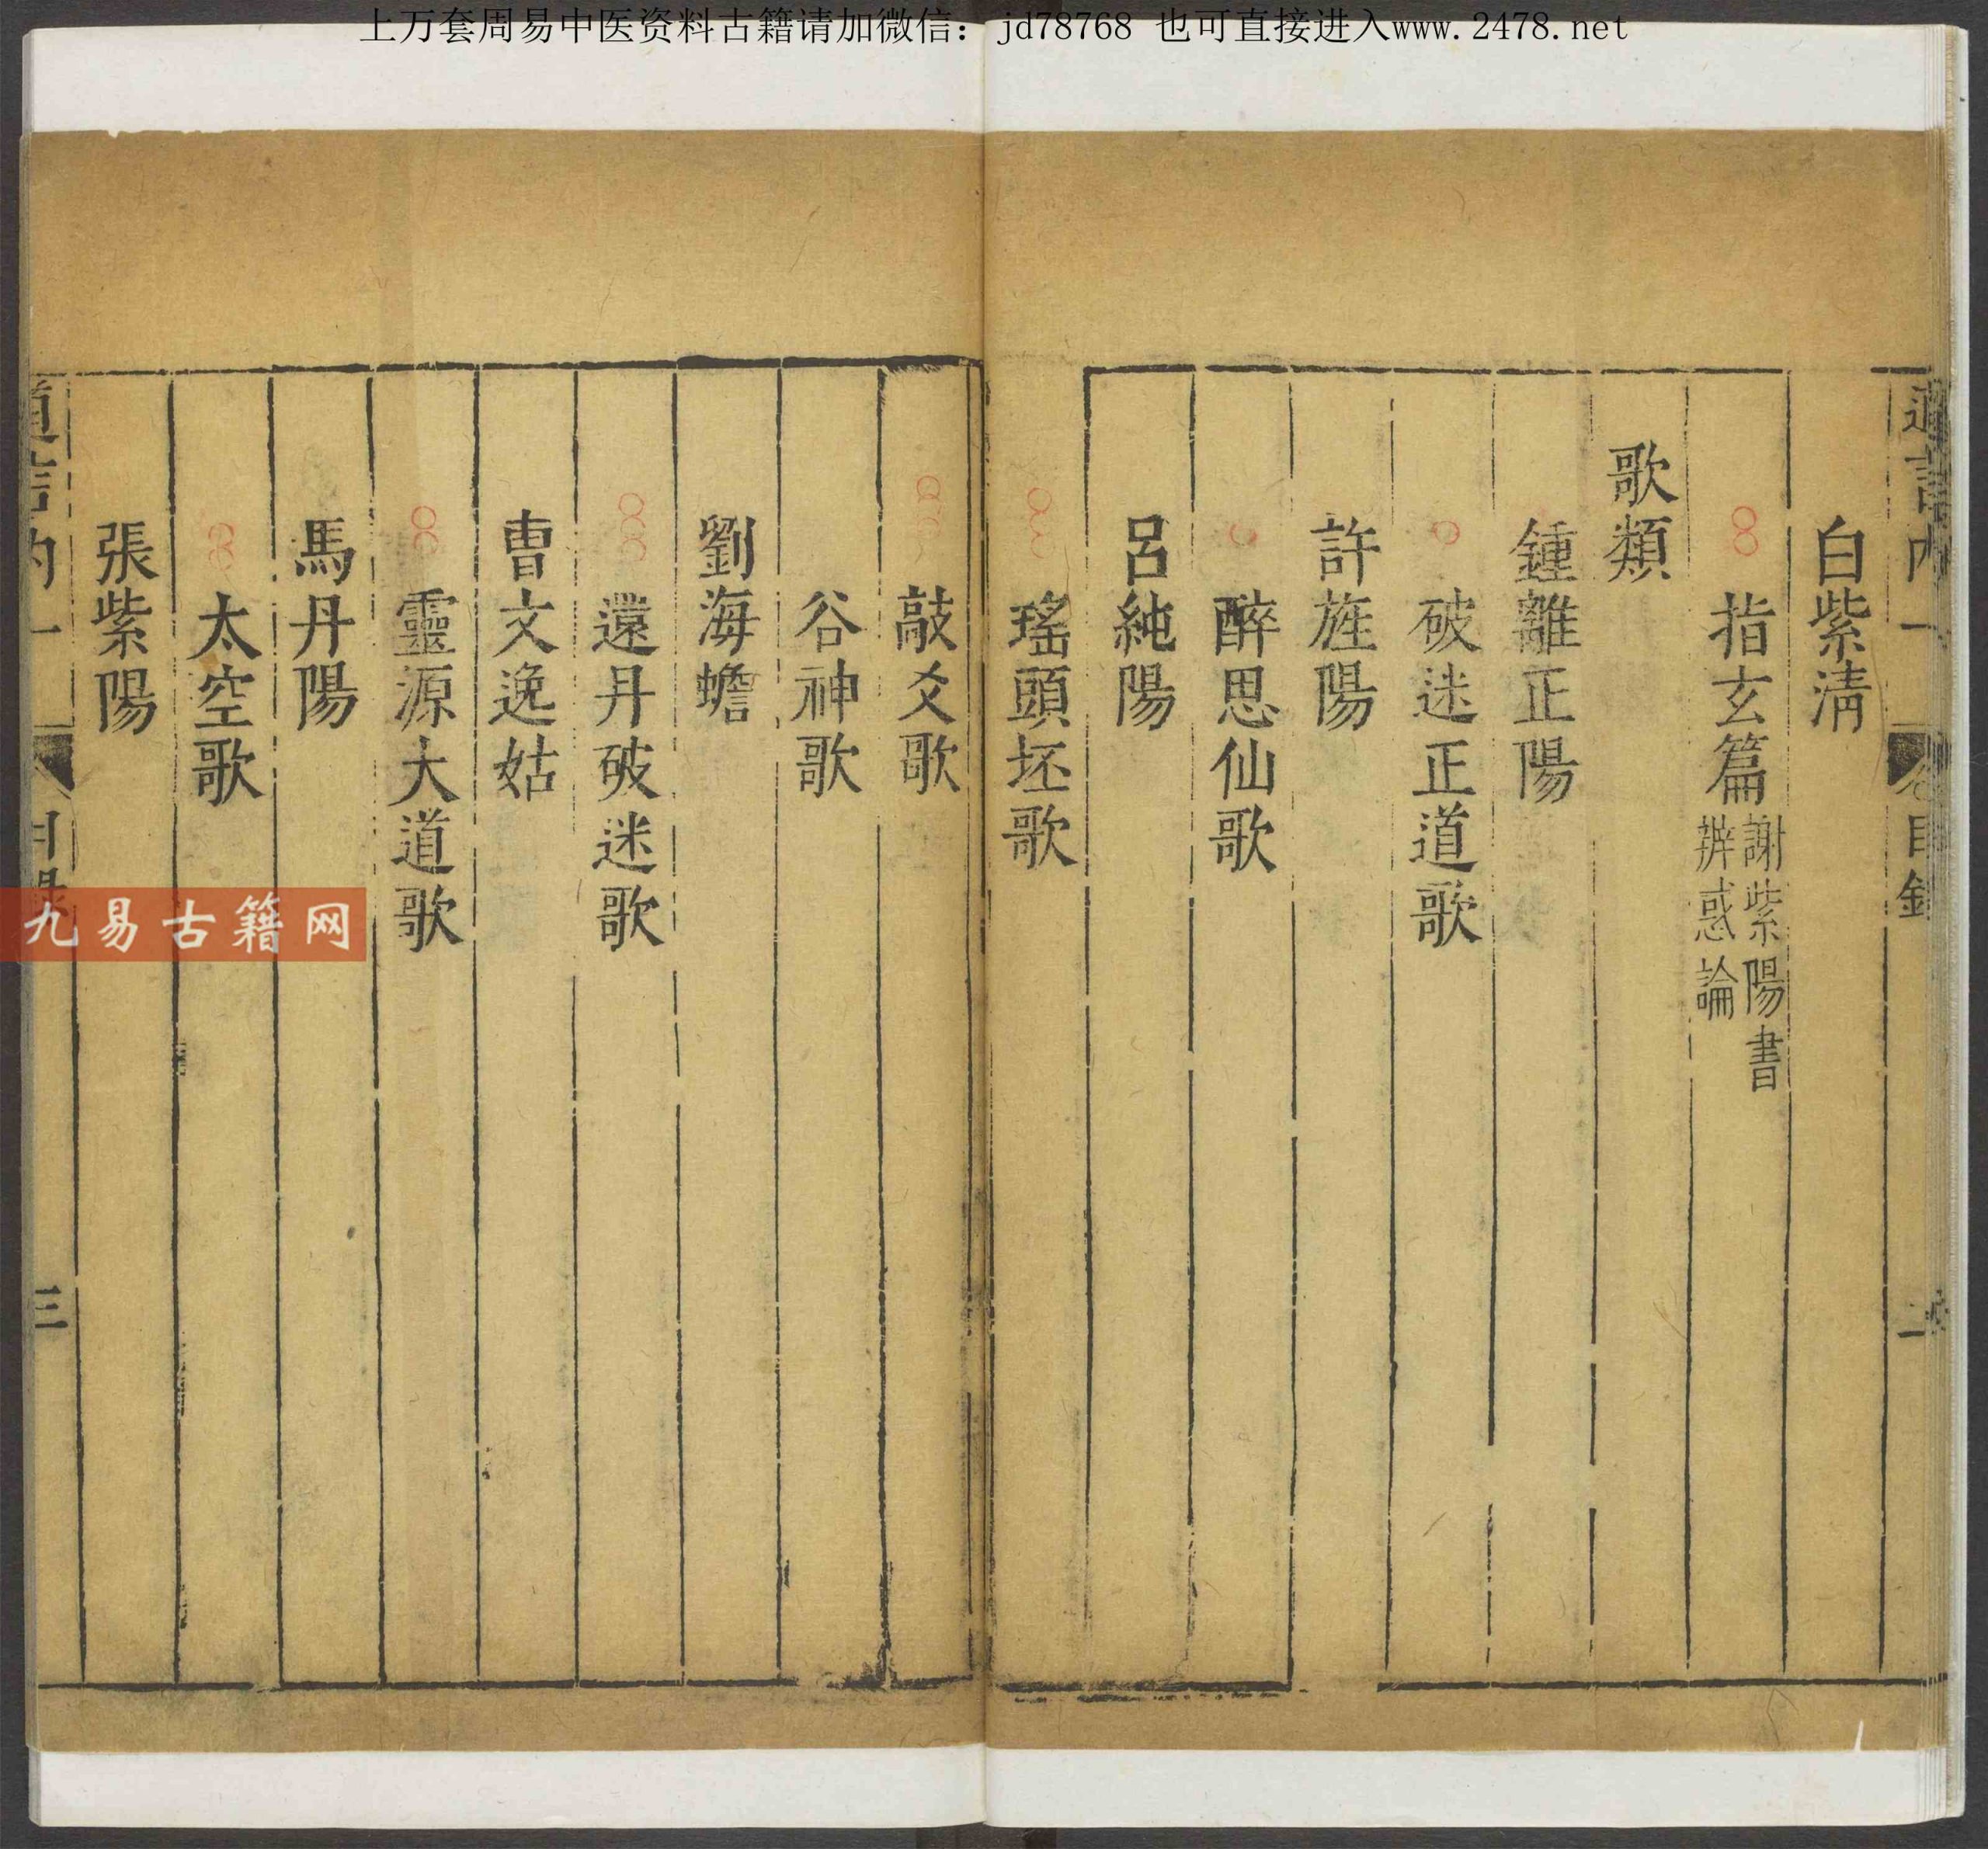 上万套周易中医资料古籍请加微信: jd78768 也可直接进入www.2478.net
白紫清
指玄篇 謝紫陽書 辨惑論
歌類
鍾離正陽
破迷正道歌
許旌陽
醉思仙歌
呂純陽
瑤頭坯歌
敲爻歌
谷神歌
劉海蟾
還丹破迷歌
曹文逸姑
靈源大道歌
馬丹陽
太空歌
張紫陽
三
九易古籍网